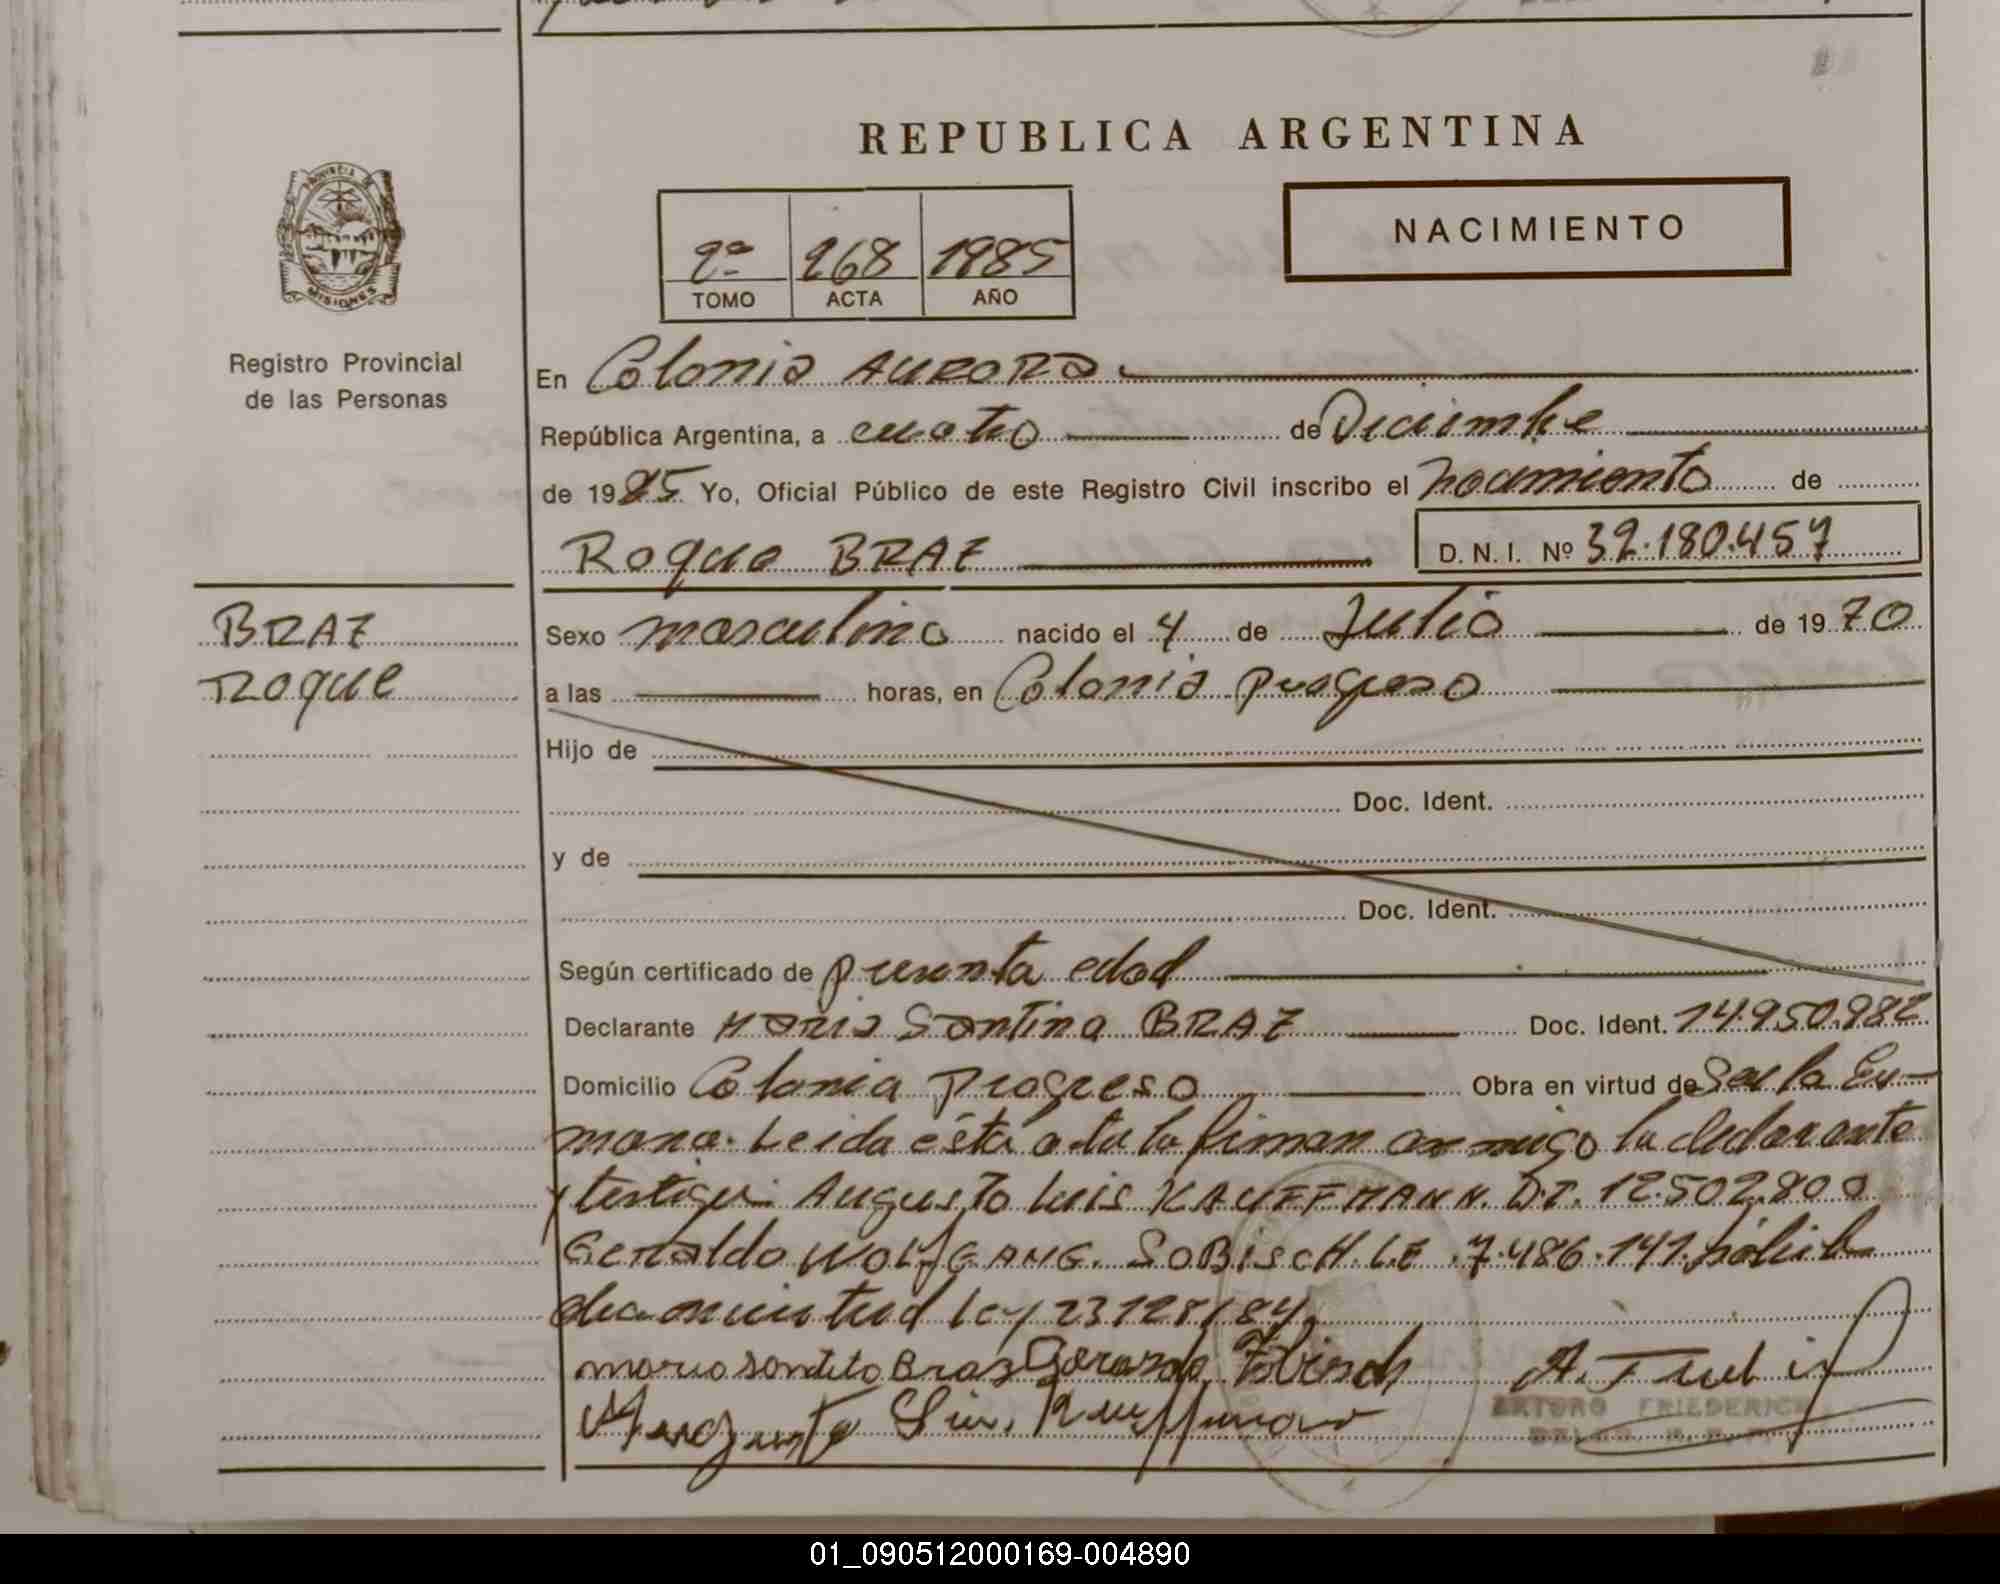 REPUBLICA ARGENTINA
PROVINCIA DE
MISIONES
Registro Provincial
de las Personas
NACIMIENTO
2º 268 1985
TOMO ACTA AÑO
En Colonia AURORA
República Argentina, a cuatro de Diciembre
de 1985 Yo, Oficial Público de este Registro Civil inscribo el nacimiento de
Roque BRAZ D. N. I. Nº 32.180.457
BRAZ
Roque
Sexo masculino nacido el 4 de Julio de 1970
a las horas, en Colonia Progreso
Hijo de
Doc. Ident.
y de
Doc. Ident.
Según certificado de presunta edad
Declarante Maria Santina BRAZ Doc. Ident. 14.950.982
Domicilio Colonia Progreso Obra en virtud de Ser la
mana. Leida ésta acta la firman conmigo la declarante
y testigos: Augusto Luis KAUFFMANN. D.I. 12.502.800
Geraldo WOLFGANG. SOBISCH. L.E. 7.486.141.
ley 23128/84
ARTURO FRIEDERICH
01_090512000169-004890